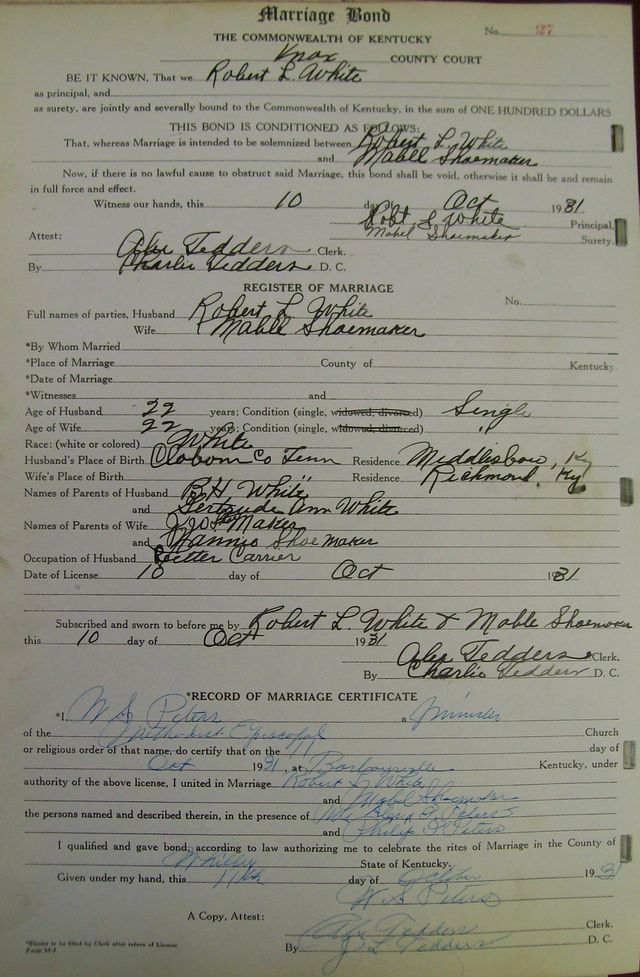 Marriage Bond
No. 27
THE COMMONWEALTH OF KENTUCKY
Knox COUNTY COURT
BE IT KNOWN, That we Robert L. White
as principal, and
as surety, are jointly and severally bound to the Commonwealth of Kentucky, in the sum of ONE HUNDRED DOLLARS
THIS BOND IS CONDITIONED AS FOLLOWS:
That, whereas Marriage is intended to be solemnized between Robert L White
and Mabell Shoemaker
Now, if there is no lawful cause to obstruct said Marriage, this bond shall be void, otherwise it shall be and remain
in full force and effect.
Witness our hands, this 10 day Oct 1931
Robt L White Principal,
Mabel Shoemaker Surety.
Attest:
Alex Tedders Clerk.
By Charlie Tedders D. C.
REGISTER OF MARRIAGE
No.
Full names of parties, Husband Robert L. White
Wife Mabell Shoemaker
*By Whom Married
*Place of Marriage County of Kentucky.
*Date of Marriage
*Witnesses and
Age of Husband 22 years; Condition (single, widowed, divorced) Single
Age of Wife 22 years; Condition (single, widowed, divorced) "
Race: (white or colored) White
Husband's Place of Birth Claborn Co Tenn Residence Middlesboro, Ky
Wife's Place of Birth Residence Richmond, Ky
Names of Parents of Husband R H White
and Gertrude Ann White
Names of Parents of Wife Maker
and Nannie Shoe maker
Occupation of Husband Letter Carrier
Date of License 10 day of Oct 1931
Subscribed and sworn to before me by Robert L. White & Mable Shoemaker
this 10 day of Oct 1931
Alex Tedders Clerk,
By Charlie Tedders D. C.
*RECORD OF MARRIAGE CERTIFICATE
*I, W S Peters a Minister
of the Methodist Episcopal Church
or religious order of that name, do certify that on the day of
Oct 1931, at Barbourville Kentucky, under
authority of the above license, I united in Marriage Robert L White
and Mabel Shoemaker
the persons named and described therein, in the presence of Peters
and Philip Peters
I qualified and gave bond, according to law authorizing me to celebrate the rites of Marriage in the County of
Whitley State of Kentucky.
Given under my hand, this 11th day of October 1931
W S Peters
A Copy, Attest:
Alex Tedders Clerk.
By J L Tedders D. C.
*Blanks to be filled by Clerk after return of License
Form M-7